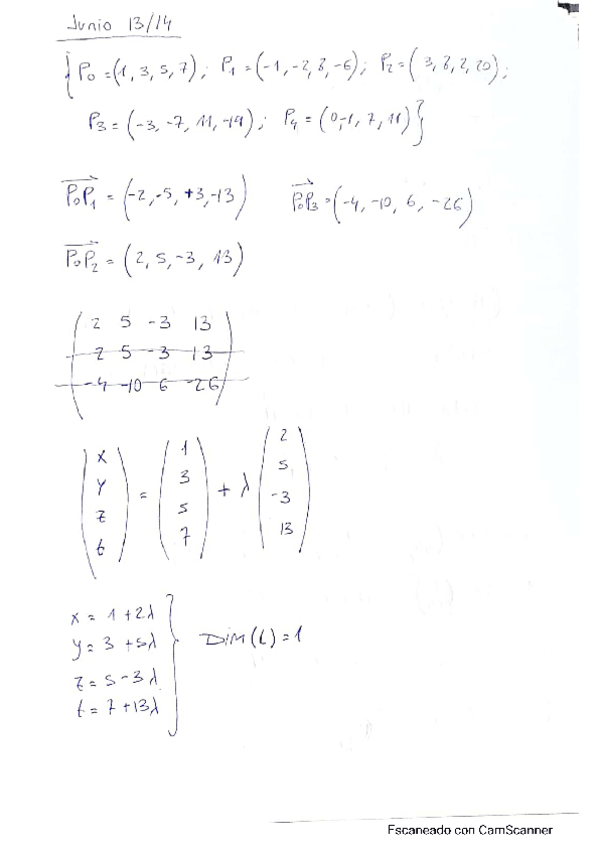 Junio 13/14
{P0 = (1, 3, 5, 7); P1 = (-1, -2, 8, -6); P2 = (3, 8, 2, 20);
P3 = (-3, -7, 11, -19); P4 = (0, -1, 7, 11)}
P0P1 = (-2, -5, +3, -13) P0P3 = (-4, -10, 6, -26)
P0P2 = (2, 5, -3, 13)
2 5 -3 13
2 5 -3 13
-4 -10 6 -26
(x y z t) = (1 3 5 7) + λ (2 5 -3 13)
x = 1 + 2λ
y = 3 + 5λ Dim(L) = 1
z = 5 - 3λ
t = 7 + 13λ
Escaneado con CamScanner